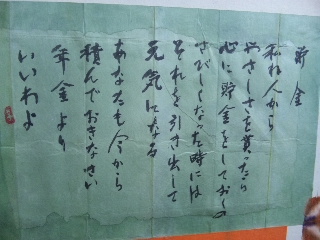 貯金
私ね人から
やさしさを貰ったら
心に貯金をしておくの
さびしくなった時には
それを引き出して
元気になる
あなたも今から
積んでおきなさい
年金より
いいわよ